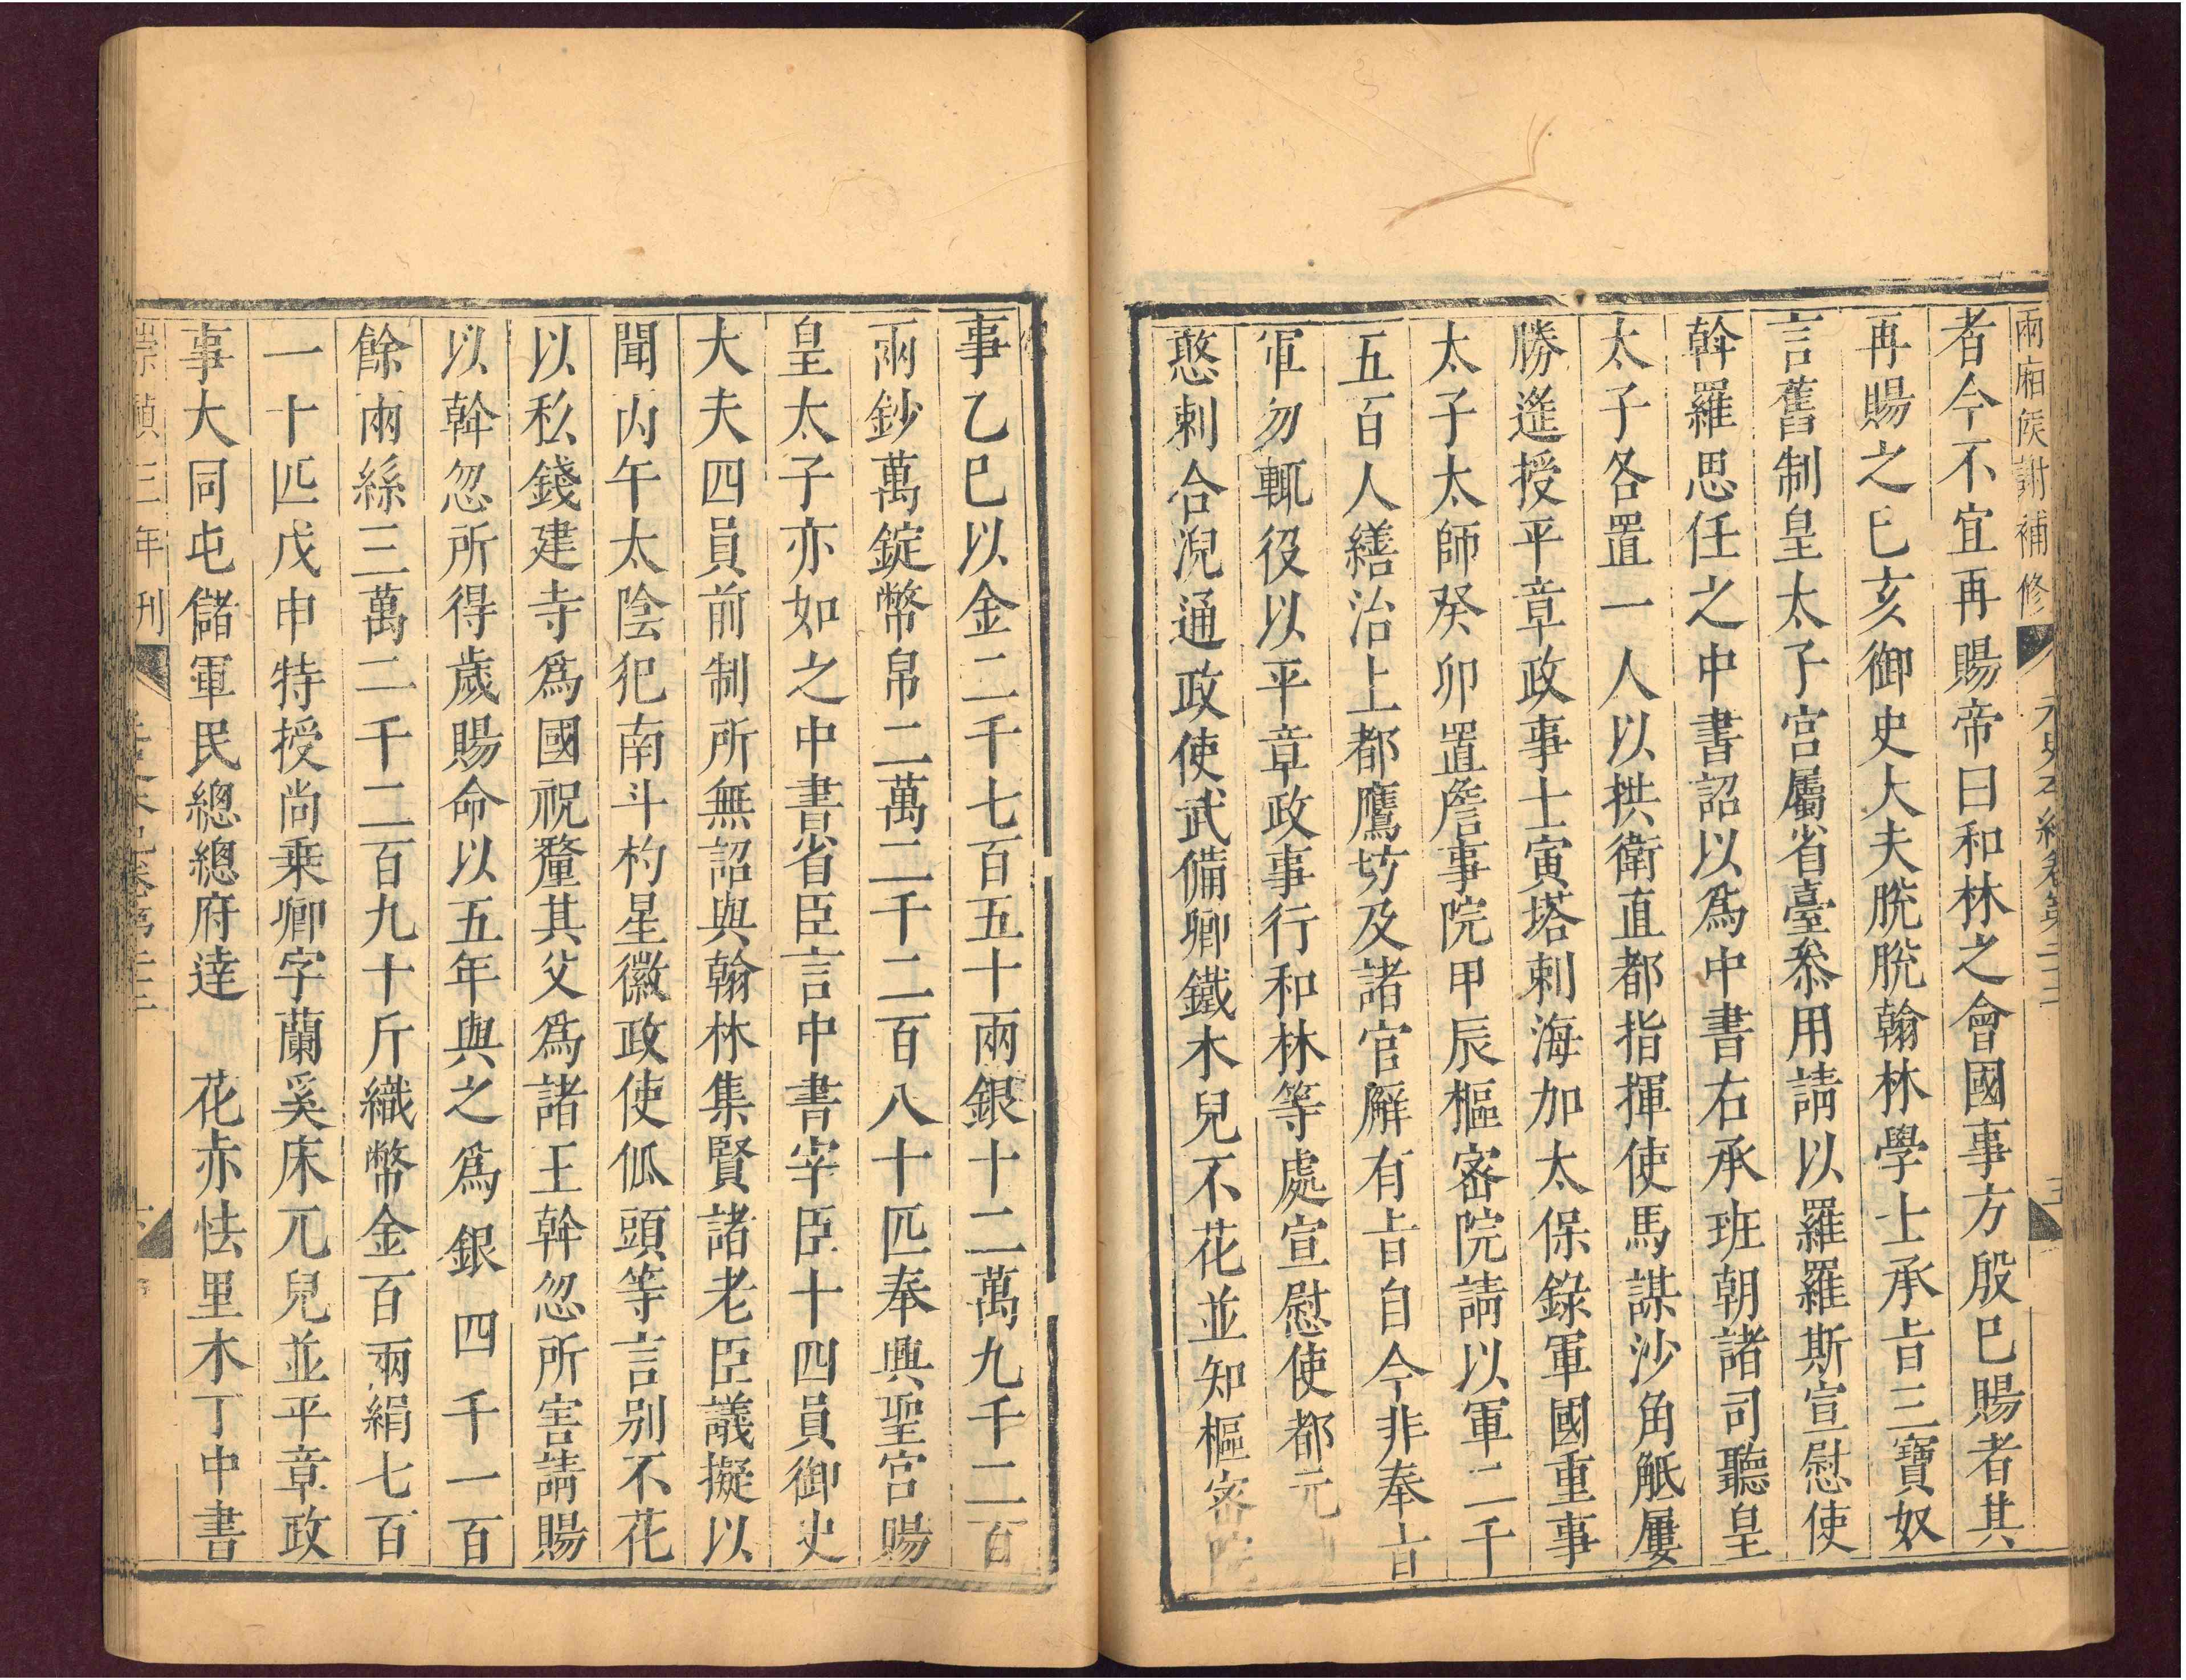 兩廂侯謝補修 元史本紀卷第二十二 五
者今不宜再賜帝曰和林之會國事方殷已賜者其
再賜之己亥御史大夫脫脫翰林學士承旨三寶奴
言舊制皇太子官屬省臺叅用請以羅羅斯宣慰使
斡羅思任之中書詔以爲中書右丞班朝諸司聽皇
太子各置一人以拱衛直都指揮使馬謀沙角觝屢
勝進授平章政事士寅塔剌海加太保錄軍國重事
太子太師癸卯置詹事院甲辰樞密院請以軍二千
五百人繕治上都鷹坊及諸官廨有旨自今非奉旨
軍勿輒役以平章政事行和林等處宣慰使都元
憨剌合兒通政使武備卿鐵木兒不花並知樞密院
事乙巳以金二千七百五十兩銀十二萬九千二百
兩鈔萬錠幣帛二萬二千二百八十匹奉興聖宮賜
皇太子亦如之中書省臣言中書宰臣十四員御史
大夫四員前制所無詔與翰林集賢諸老臣議擬以
聞丙午太陰犯南斗杓星徽政使㼌頭等言别不花
以私錢建寺爲國祝釐其父爲諸王斡忽所害請賜
以斡忽所得歲賜命以五年與之爲銀四千一百
餘兩絲三萬二千二百九十斤織幣金百兩絹七百
一十匹戊申特授尚乗卿孛蘭奚床兀兒並平章政
事大同屯儲軍民總總府達 花赤怯里木丁中書
崇禎三年刊 元史本紀卷第二十二 六